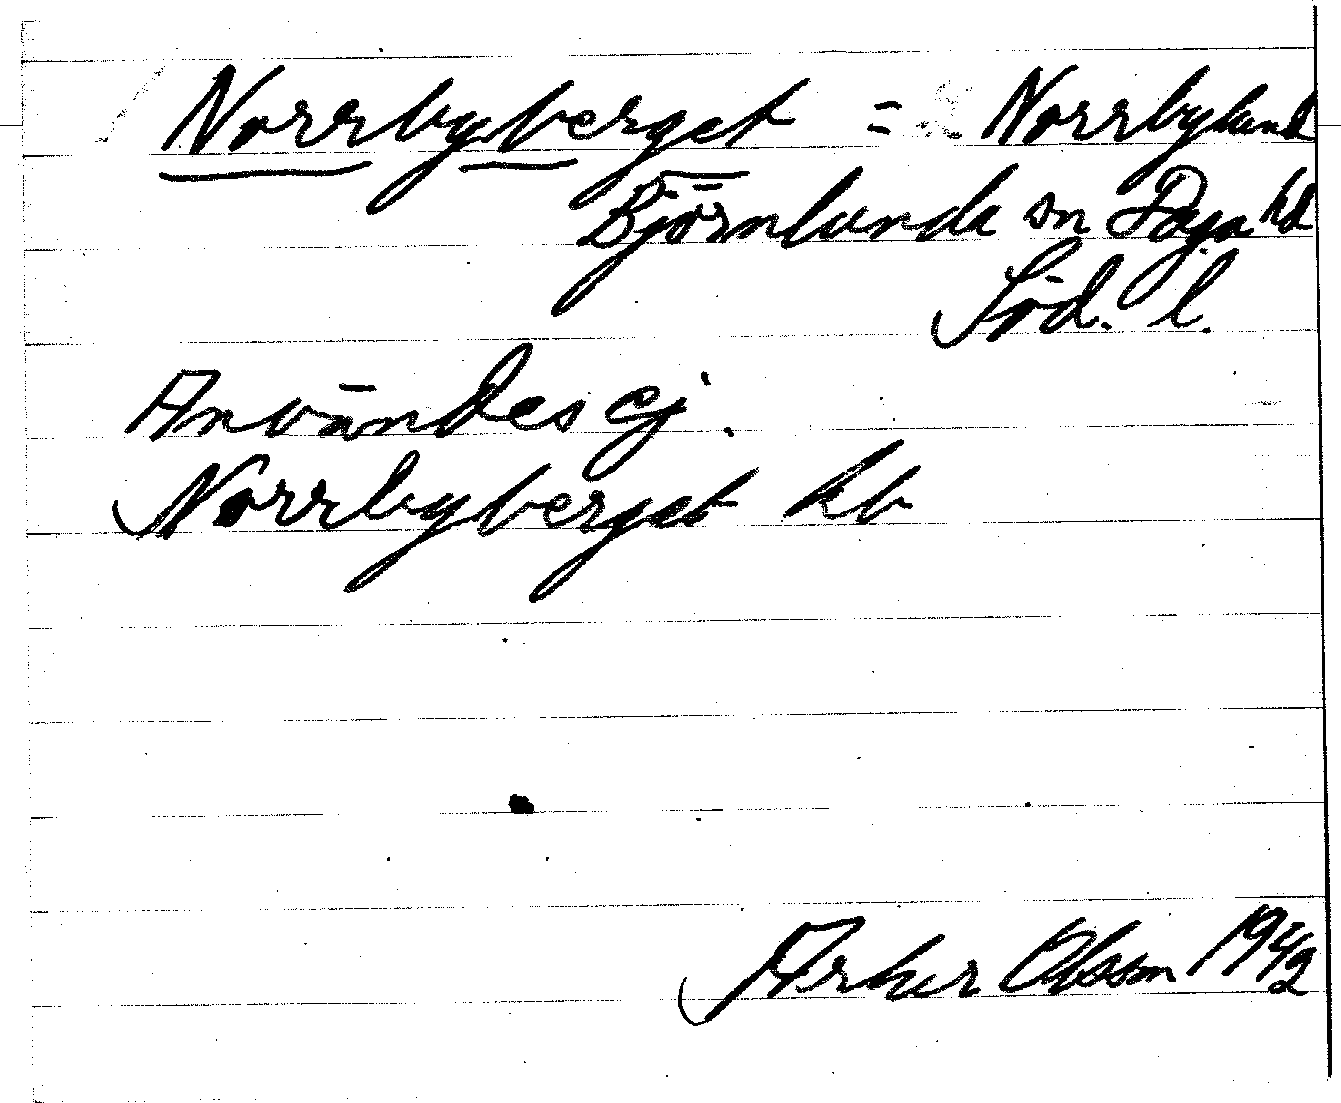 Norrbyberget = Norrbylund
Björnlunda sn Daga hd
Söd. l.
Användes ej.
Norrbyberget kb
Artur Olsson 1942